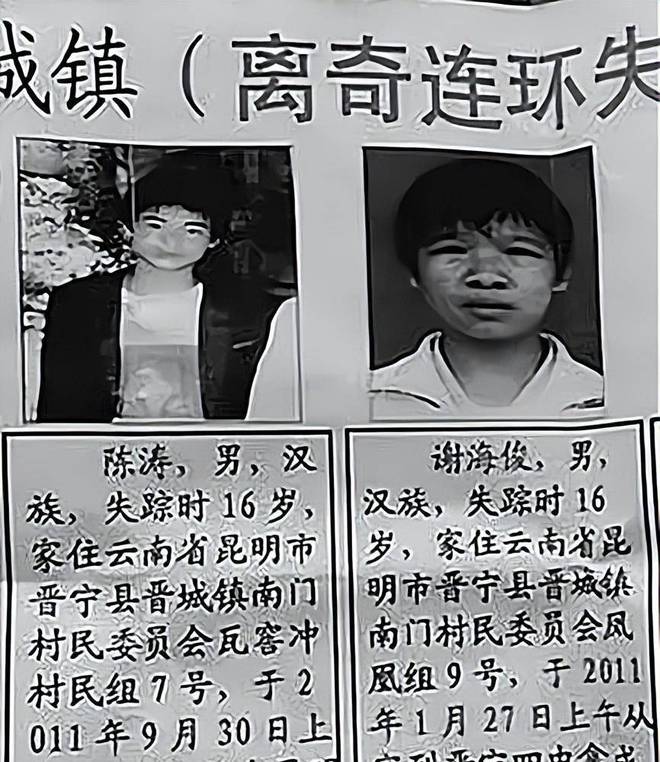 城镇（离奇连环失
陈涛，男，汉
族，失踪时16岁，
家住云南省昆明市
晋宁县晋城镇南门
村民委员会瓦窑冲
村民组7号，于2
011年9月30日上
谢海俊，男，
汉族，失踪时16
岁，家住云南省昆
明市晋宁县晋城镇
南门村民委员会凤
凰组9号，于2011
年1月27日上午从